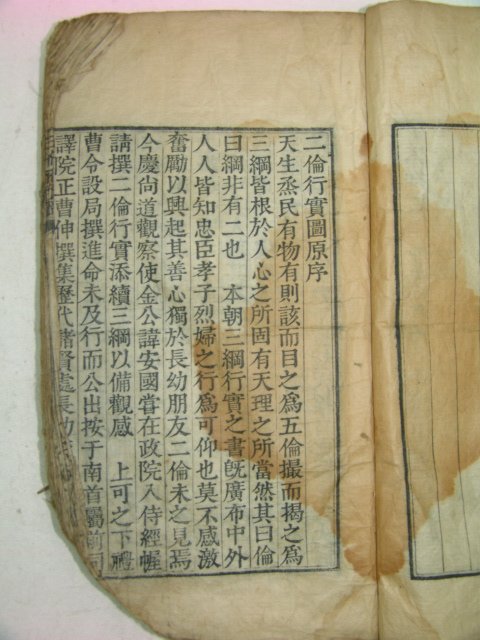 二倫行實圖原序
天生烝民有物有則該而目之爲五倫撮而揭之爲
三綱皆根於人心之所固有天理之所當然其曰倫
曰綱非有二也　本朝三綱行實之書旣廣布中外
人人皆知忠臣孝子烈婦之行爲可仰也莫不感激
奮勵以興起其善心獨於長幼朋友二倫未之見焉
今慶尙道觀察使金公諱安國嘗在政院入侍經幄
請撰二倫行實添續三綱以備觀感　上可之下禮
曹令設局撰進命未及行而公出按于南首屬前司
譯院正曹伸撰集歷代諸賢處長幼